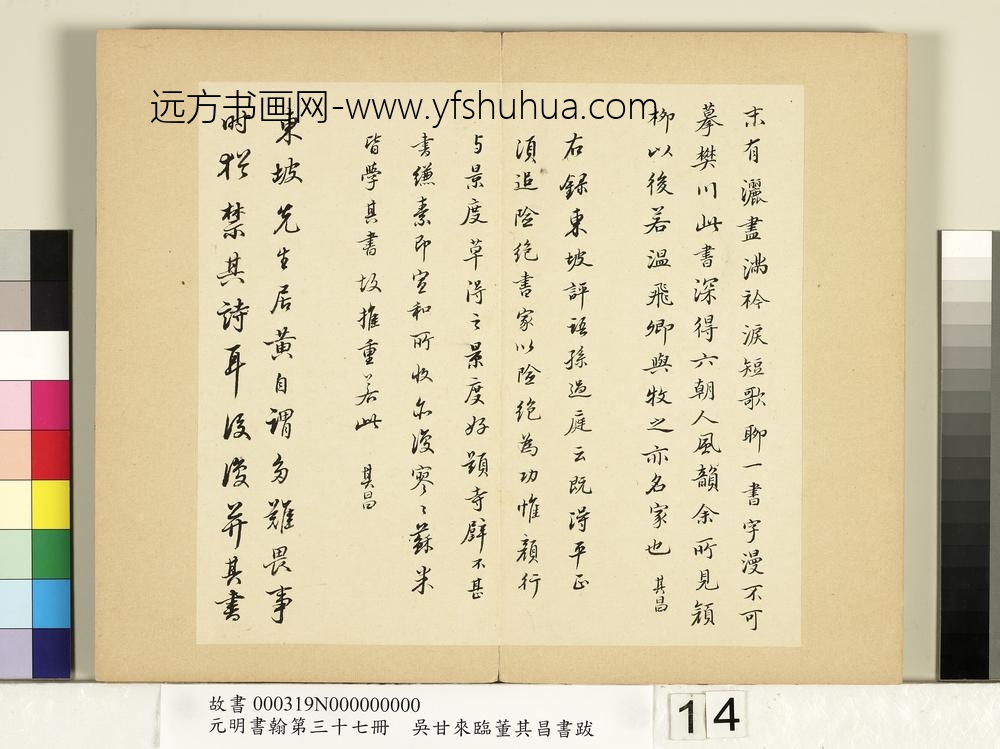 远方书画网-www.yfshuhua.com
末有灑盡滿衿淚短歌聊一書字漫不可
摹樊川此書深得六朝人風韻余所見顏
柳以後若溫飛卿與牧之亦名家也 其昌
右錄東坡評語孫過庭云既得平正
須追險絕書家以險絕為功惟顏行
与景度草得之景度好題寺壁不甚
書縑素即宣和所收亦復寥〻蘇米
皆學其書故推重若此 其昌
東坡先生居黃自謂多難畏事
時猶禁其詩耳後復并其書
故書 000319N000000000
元明書翰第三十七冊 吳甘來臨董其昌書跋
14